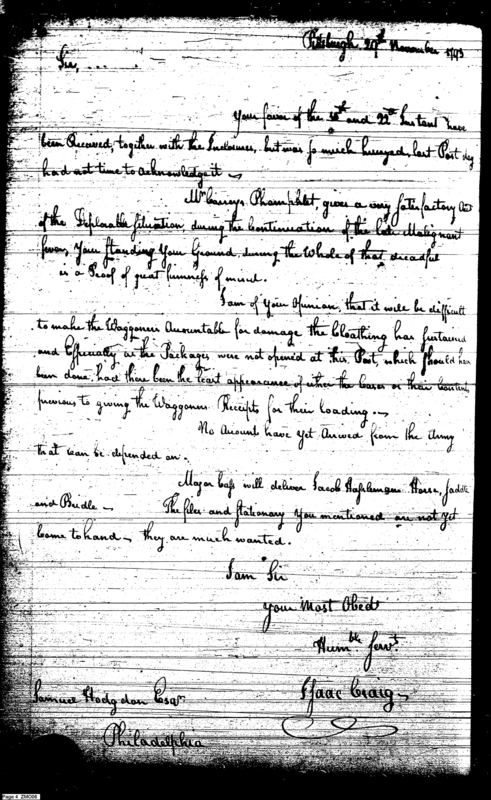 Pittsburgh 29th November 1793
Sir,
Your favor of the 16th and 22d Instant have
been Received, together with the Inclosures, but was so much hurryed, last Post day
had not time to Acknowledge it
Mr Careys Phamphlet, gives a very satisfactory Acct
of the Deplorable Situation, during the Continuation of the late Malignant
fever, Your standing Your Ground, during the Whole of that dreadful
is a Proof of great firmness of mind.
I am of Your Opinion, that it will be difficult
to make the Waggoners Accountable for damage the Cloathing has sustained
and Especially as the Packages were not opened at this Post, which should have
been done, had there been the least appearance of either the Cases or their Contents
previous to giving the Waggoners Receipts for their loading.
No Account have yet Arrived from the Army
that can be depended on.
Major Cass will deliver Jacob Horse Saddle
and Bridle The files and Stationary You mentioned are not yet
Come to hand they are much wanted.
I am Sir
Your Most Obedt
Humble Servt
Isaac Craig
Samuel Hodgdon Esqr
Philadelphia
Page 4 ZM006